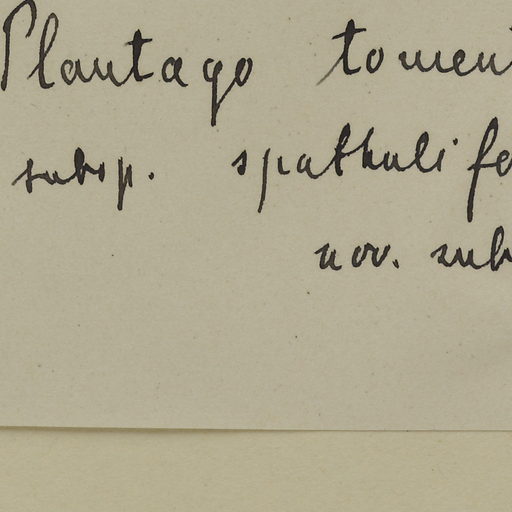 Plantago tomen
subsp. spathulifo
nov. sub